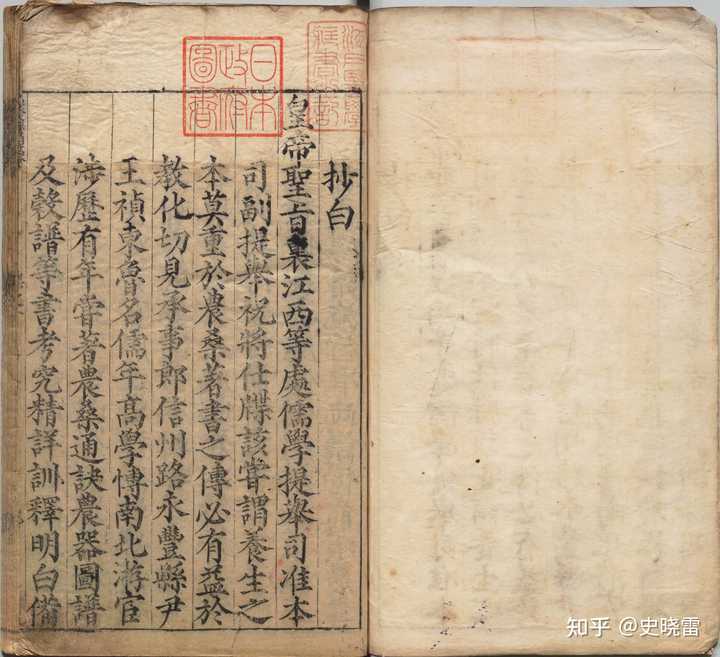 抄白
皇帝聖旨裏江西等處儒學提舉司准本
司副提舉祝將仕牒該嘗謂養生之
本莫重於農桑著書之傳必有益於
教化切見承事郎信州路永豐縣尹
王禎東魯名儒年高學博南北游宦
涉歷有年嘗著農桑通訣農器圖譜
及穀譜等書考究精詳訓釋明白備
日本
政府
圖書
知乎 @史晓雷